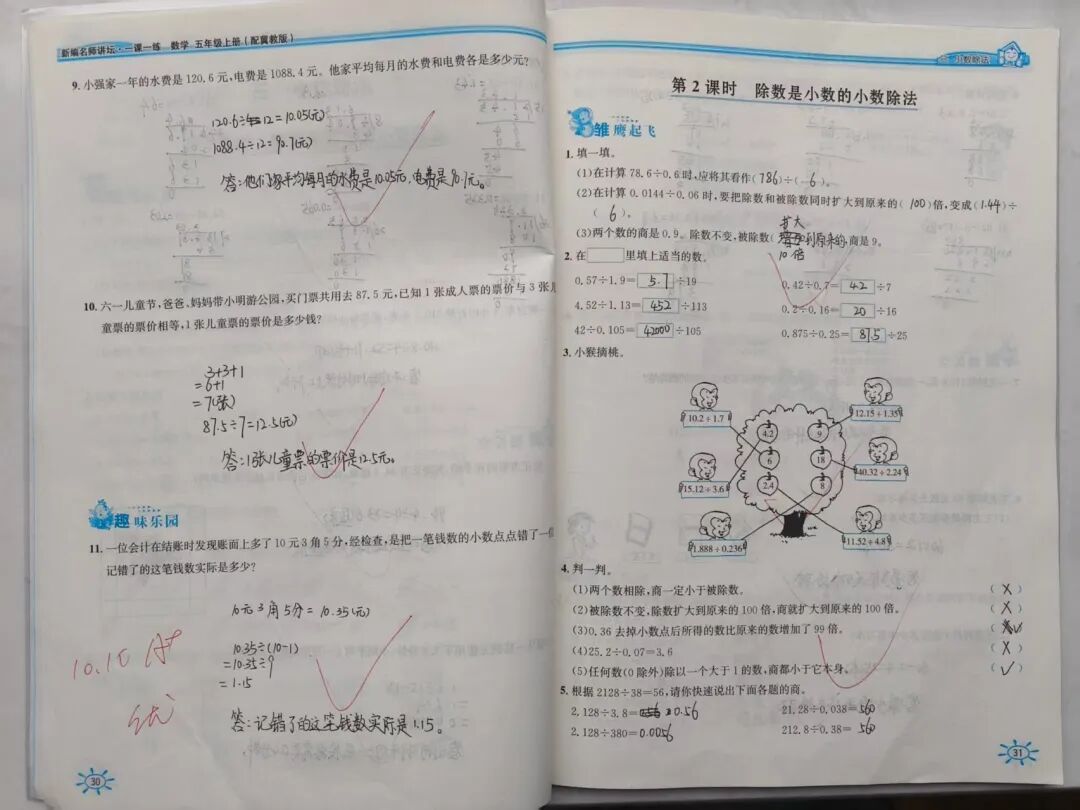 新编名师讲坛·一课一练 数学 五年级上册(配冀教版)
9. 小强家一年的水费是 120.6 元,电费是 1088.4 元。他家平均每月的水费和电费各是多少元?
120.6÷12=10.05(元)
1088.4÷12=90.7(元)
答:他们家平均每月的水费是10.05元,电费是90.7元。
10. 六一儿童节,爸爸、妈妈带小明游公园,买门票共用去 87.5 元,已知 1 张成人票的票价与 3 张儿
童票的票价相等,1 张儿童票的票价是多少钱?
3+3+1
=6+1
=7(张)
87.5÷7=12.5(元)
答:1张儿童票的票价是12.5元。
趣味乐园
11. 一位会计在结账时发现账面上多了 10 元 3 角 5 分,经检查,是把一笔钱数的小数点点错了一位
记错了的这笔钱数实际是多少?
10元3角5分=10.35(元)
10.35÷(10-1)
=10.35÷9
=1.15
答:记错了的这笔钱数实际是1.15。
10.10
优
30
小数除法
第 2 课时 除数是小数的小数除法
雏鹰起飞
1. 填一填。
(1)在计算 78.6÷0.6 时,应将其看作(786)÷(6)。
(2)在计算 0.0144÷0.06 时,要把除数和被除数同时扩大到原来的(100)倍,变成(1.44)÷
(6)。
(3)两个数的商是 0.9。除数不变,被除数(扩大到原来的10倍 商是 9。
2. 在 里填上适当的数。
0.57÷1.9=5.7÷19 0.42÷0.7=4.2÷7
4.52÷1.13=452÷113 0.2÷0.16=20÷16
42÷0.105=42000÷105 0.875÷0.25=87.5÷25
3. 小猴摘桃。
10.2÷1.7 12.15÷1.35
4.2 9
6 18
15.12÷3.6 40.32÷2.24
2.4 8
1.888÷0.236 11.52÷4.8
4. 判一判。
(1)两个数相除,商一定小于被除数。 (X)
(2)被除数不变,除数扩大到原来的 100 倍,商就扩大到原来的 100 倍。 (X)
(3)0.36 去掉小数点后所得的数比原来的数增加了 99 倍。 (√)
(4)25.2÷0.07=3.6 (X)
(5)任何数(0 除外)除以一个大于 1 的数,商都小于它本身。 (√)
5. 根据 2128÷38=56,请你快速说出下面各题的商。
2.128÷3.8=0.56 21.28÷0.038=560
2.128÷380=0.0056 212.8÷0.38=560
31